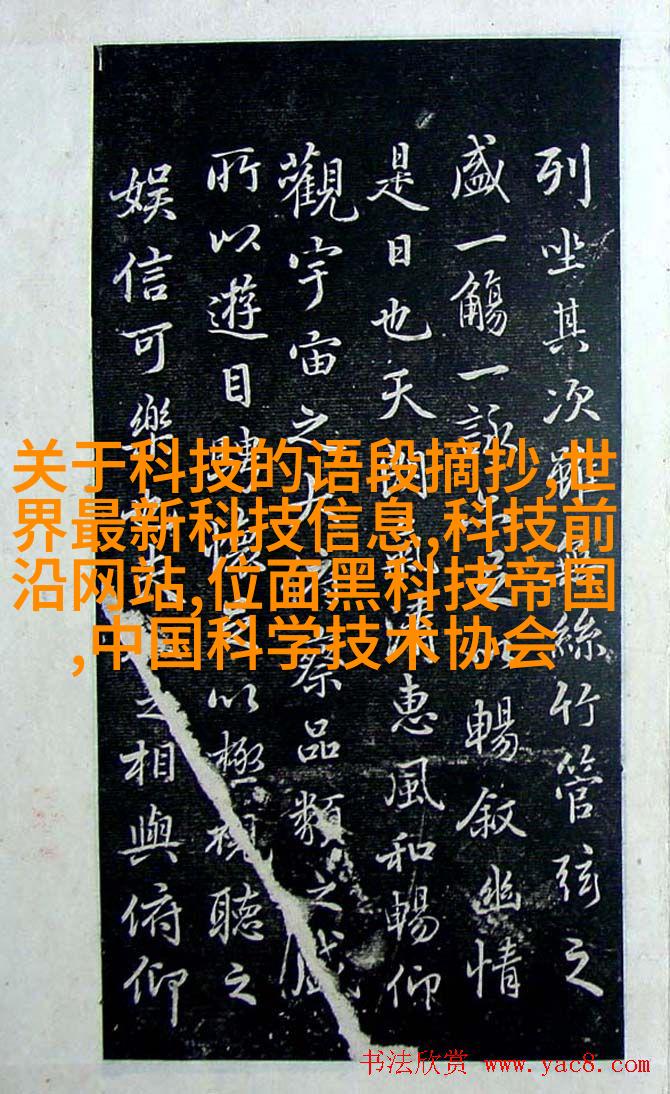 列坐其次雖絲竹管弦之
盛一觴一詠足暢叙幽情
是日也天朗清惠風和暢仰
觀宇宙之大察品類之盛
所以遊目騁懷足以極視聽之
娱信可樂之相與俯仰
关于科技的语段摘抄,世
界最新科技信息,科技前
沿网站,位面黑科技帝国
,中国科学技术协会
书法欣赏 www.yac8.com